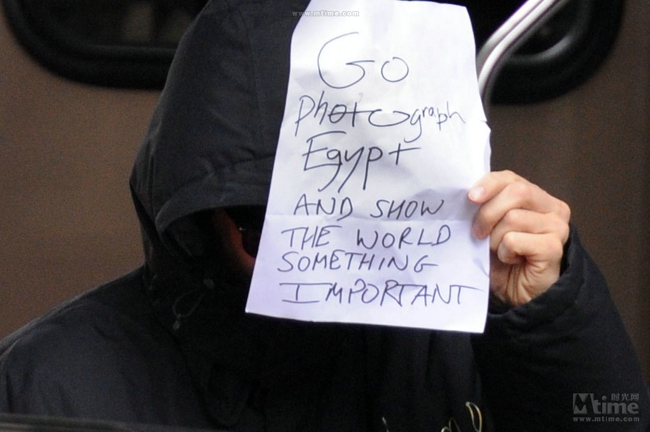 www.mtime.com
Go
photograph
Egypt
AND SHOW
THE WORLD
SOMETHING
IMPORTANT
Mtime 时光网
www.mtime.com